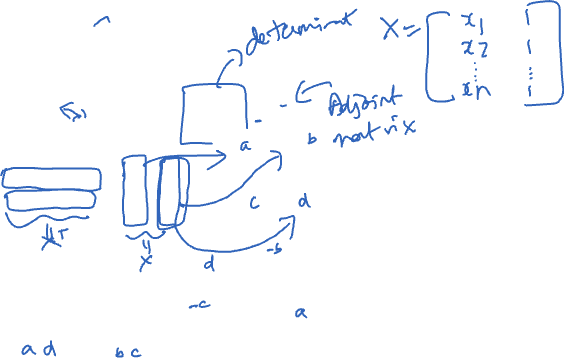 determinant
X = [ x1 1
x2 1
⋮ ⋮
xn 1 ]
Adjoint
matrix
a b
c d
X^T
X
d -b
-c a
ad bc